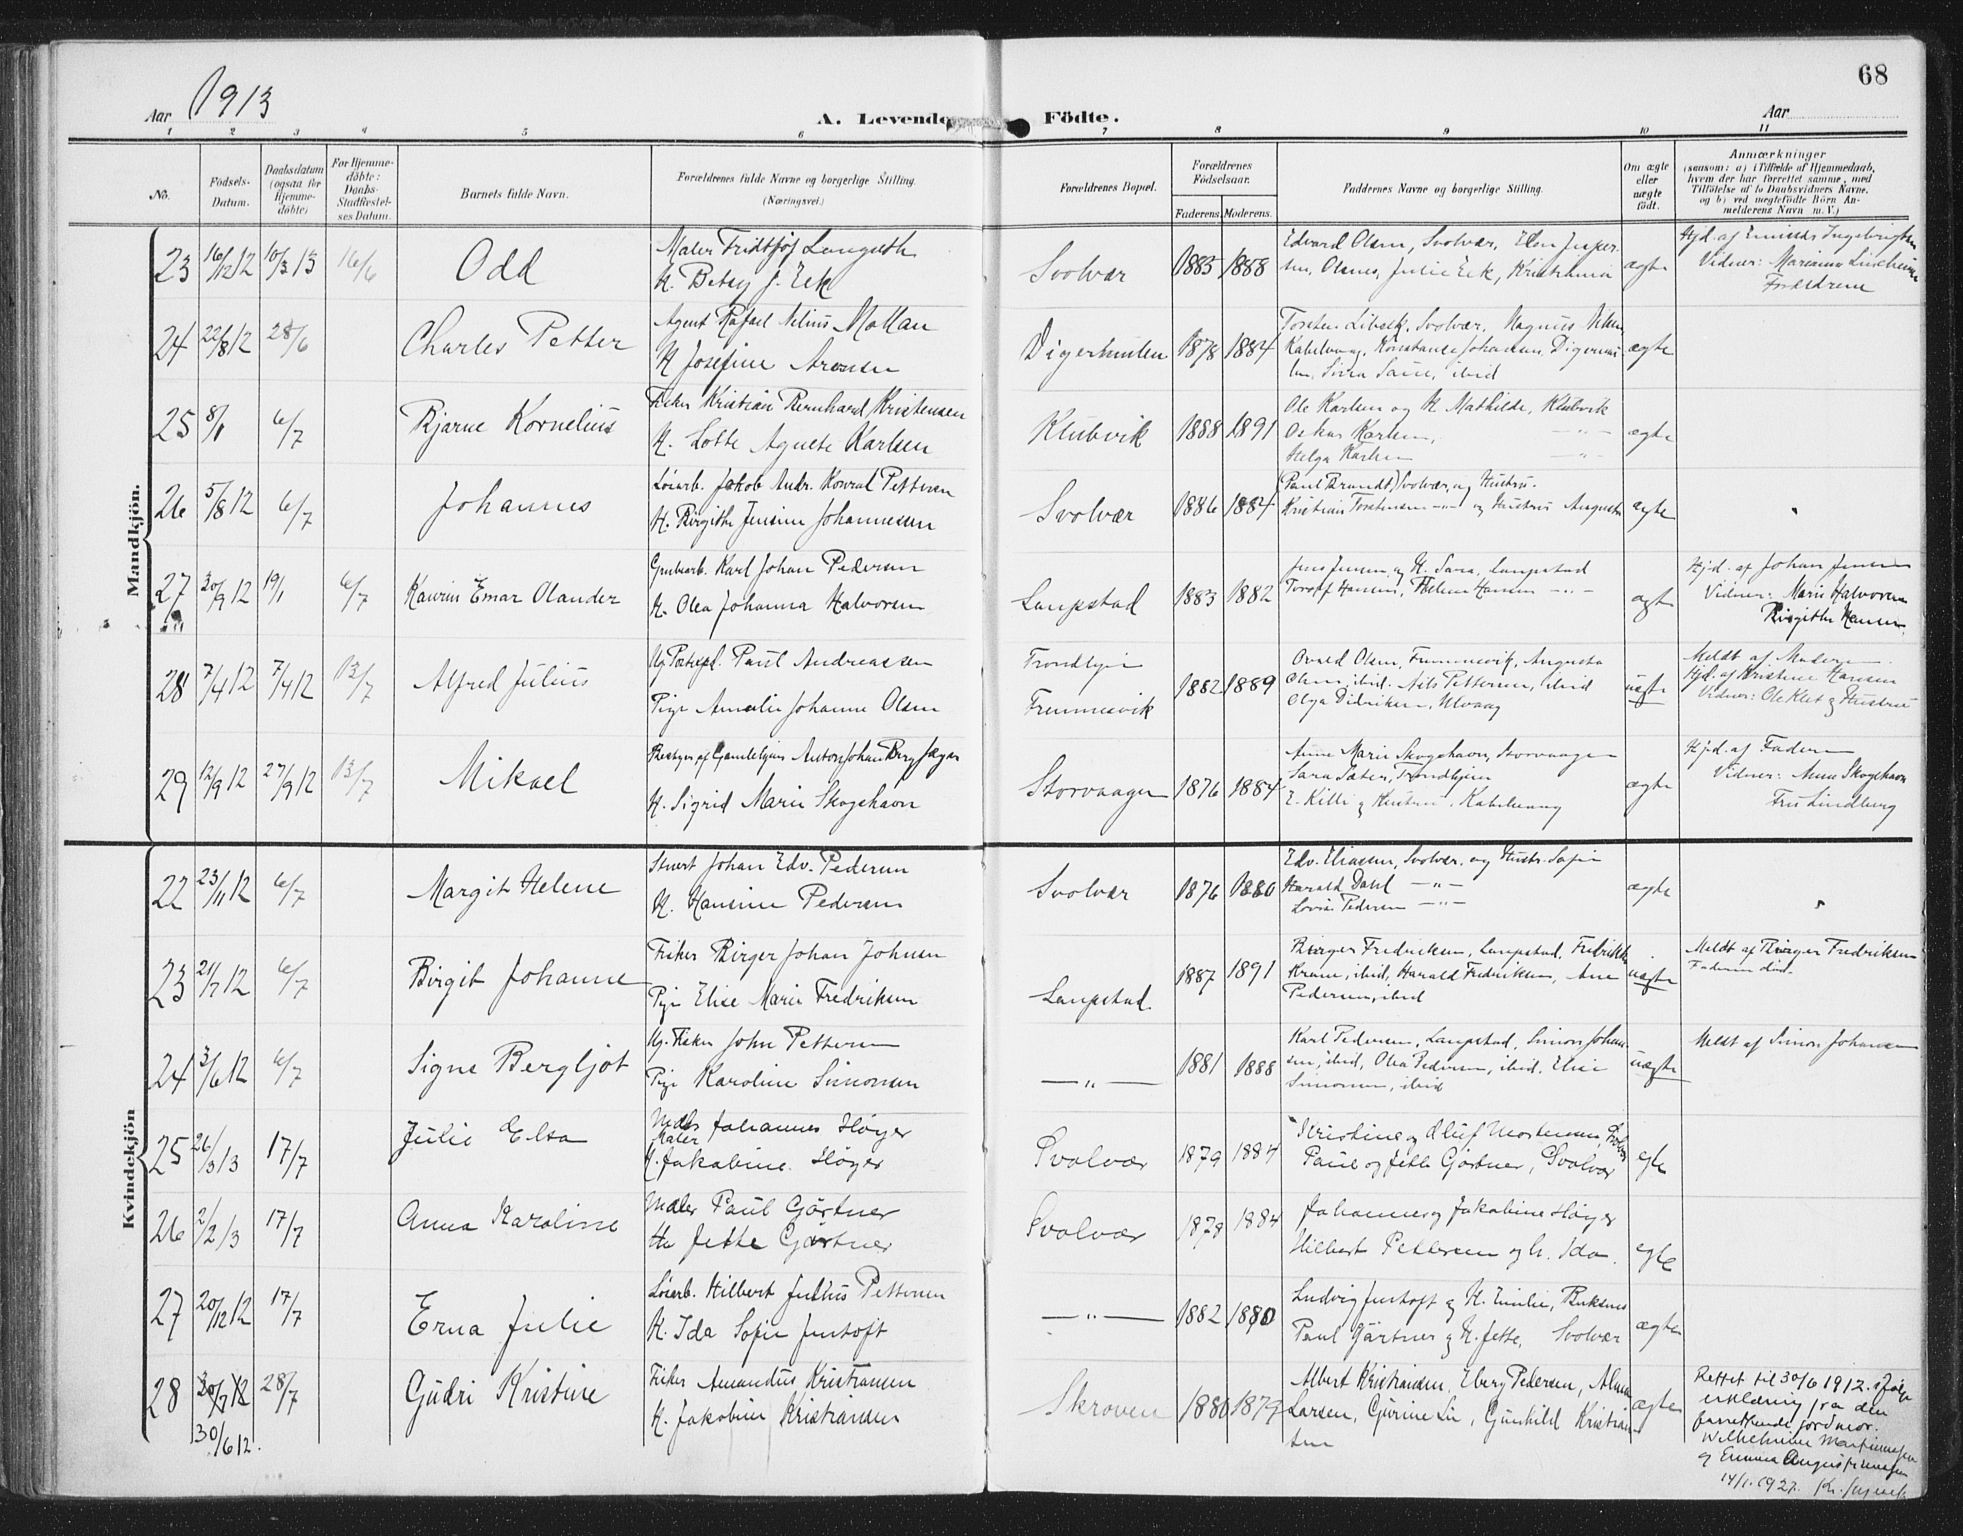 68
Aar 1913 A. Levende Födte. Aar
1 2 3 4 5 6 7 8 9 10 11
No.
Födsels-Datum.
Daabsdatum (ogsaa for Hjemme-döbte)
For Hjemme-döbte: Daabs-Stadfæstel-ses Datum.
Barnets fulde Navn.
Forældrenes fulde Navne og borgerlige Stilling.
(Næringsvei.)
Forældrenes Bopæl.
Forældrenes Födselsaar.
Faderens. Moderens.
Faddernes Navne og borgerlige Stilling.
Om ægte eller uægte födt.
Anmærkninger
(saasom: a) i Tilfælde af Hjemmedaab,
hvem der har forrettet samme, med
Tilföielse af to Daabsvidners Navne.
og b) ved uægtefödte Börn An-
melderens Navn m. V.)
Mandkjön.
23 16/12 12 10/3 13 16/6 Odd
Maler Fridtjof Langseth
H. Betsy J. Eek
Svolvær 1885 1888
Edvard Olsen, Svolvær,
Olsnes, Julie Eek, Kristiania
ægte
Hjd. af
Vidner:
Forældrene
24 22/8 12 28/6 Charles Petter
Agent Rafael Nilius Mollan
H Josefine Aronsen
Digermulen 1878 1884
Svolvær, Magnus
Kabelvaag, Konstanse Johansen, Digermu-
len, ibid
ægte
25 8/1 6/7 Bjarne Kornelius
Fisker Kristian Bernhard Kristensen
H. Lotte Agnete Karlsen
Klubvik 1888 1891
Ole Karlsen og H. Mathilde, Klubvik
Oskar Karlsen, — " —
Helga Karlsen — " —
ægte
26 5/8 12 6/7 Johannes
Løsarb. Jakob Andr. Konrad Pettersen
H. Birgithe Jensine Johannesen
Svolvær 1886 1884
(Paul Brandt,) Svolvær, og Hustru.
Kristian Torstensen — " — og Hustru Augusta
ægte
27 20/9 12 19/1 6/7 Kaurin Emar Olander
Grubearb. Karl Johan Pedersen
H. Olea Johanna Halvorsen
Laupstad 1883 1882
Jens Jensen og H. Sara, Laupstad
Hansen, Helene Hansen — " —
ægte
Hjd. af Johan Jensen
Vidner: Marie Halvorsen
Birgithe Hansen.
28 7/4 12 7/4 12 13/7 Alfred Julius
Paul Andreassen
Pige Amalie Johanne Olsen
Trondhjem
1882 1889
Olsen, Augusta
Olsen, ibid. Nils Pettersen, ibid
Olga Didriksen, Ulvaag
uægte
Meldt af Moderen.
Hjd. af Kristine Hansen
Vidner: Ole Klet og Hustru
29 12/9 12 27/9 12 13/7 Mikael
Anton Johan Berg Jæger
H. Sigrid Marie Skogehavn
Storvaagen 1876 1884
Anne Marie Skogehavn, Storvaagen
Sara Sæter, Trondhjem
E. Killi og Hustru, Kabelvaag
ægte
Hjd. af Faderen
Vidner: Anna Skogehavn
Fru Lindberg
Kvindekjön
22 23/11 12 6/7 Margit Helene
Stuert Johan Edv. Pedersen
H. Hansine Pedersen
Svolvær 1876 1880
Edv. Eliassen, Svolvær, og Hustr. Sofie
Harald Dahl — " —
Lovise Pedersen — " —
ægte
23 21/7 12 6/7 Birgit Johanne
Fisker Birger Johan Johnsen
Pige Elise Marie Fredriksen
Laupstad. 1887 1891
Birger Fredriksen, Laupstad, Fredrikke
Krane, ibid, Harald Fredriksen, Ane
Pedersen, ibid
uægte
Meldt af Birger Fredriksen
Faderen død.
24 3/6 12 6/7 Signe Bergljot
Ug. Fisker John Pettersen
Pige Karoline Simonsen
— " — 1881 1888
Karl Pedersen, Laupstad, Simon Johan-
sen, ibid, Olea Pedersen, ibid, Elise
Simonsen, ibid
uægte
Meldt af Simon Johansen
25 26/3 13 17/7 Julie Elsa
Maler Johannes Høyer
H. Jakobine Høyer
Svolvær 1879 1884
Kristine og Oluf Mortensen, Svolvær
Paul og Jette Gørtner, Svolvær
egte
26 2/2 13 17/7 Anna Karoline
Maler Paul Gørtner
Hu Jette Gørtner
Svolvær 1878 1884
Johannes og Jakobine Høyer
Hilbert Pettersen og h. Ida.
egte
27 20/12 12 17/7 Erna Julie
Løsarb. Hilbert Julius Pettersen
H. Ida Sofie Justoft
— " — 1882 1880
Ludvig Justoft og H. Emilie, Buksnes
Paul Gärtner og H. Jette, Svolvær
ægte
28 30/7 12 28/7 Gudri Kristine
30/6 12.
Fisker Amandus Kristiansen
H. Jakobine Kristiansen
Skroven 1880 1879
Albert Kristiansen, Eberg Pedersen, Alma
Larsen, Gurine Lie, Gunhild Kristian-
sen
ægte
Rettet til 30/6 1912 ifølge
erklæring fra den
forrettende jordmor
Wilhelmine Martinussen
og Emma Augustinussen
14/1. 1927.